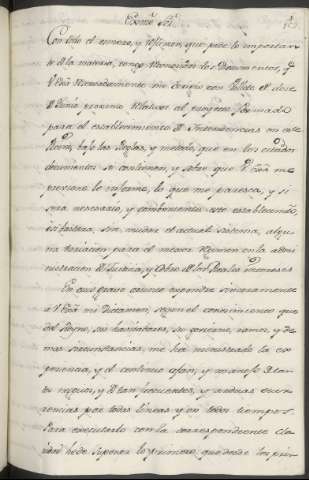 Exmo Sor
Con todo el esmero, y reflexion que pide la importancia
de la materia, tengo reconocidos los Documentos, q
V. Exa reservadamente me dirijio con Pliego de doce
de Junio proximo relativos al proyecto formado
para el establecimiento de Intendencias en este
Reyno, bajo las Reglas, y metodo, que en los citados
documentos se contienen, y sobre que V. Exa me
previene le informe, lo que me parezca, y si
será necesario, y combeniente este establecimto,
ó si bastará, sin mudar el actual sistema, algu
na variacion para el mejor Regimen en la admi
nistracion de Justicia, y Cobro de los Reales Intereses
En este grave asunto expondré sinceramente
a V. Exa mi Dictamen, segun el conocimiento que
del Reyno, sus havitadores, su govierno, ramos, y de
mas circunstancias, me há ministrado la ex
periencia, y el continuo afan, y manejo de tan
tos negocios, y de tan frecuentes, y arduas ocur
rencias por todas lineas y en todos tiempos.
Para executarlo con la correspondiente cla
ridad hé de suponer lo primero, que desde los prin